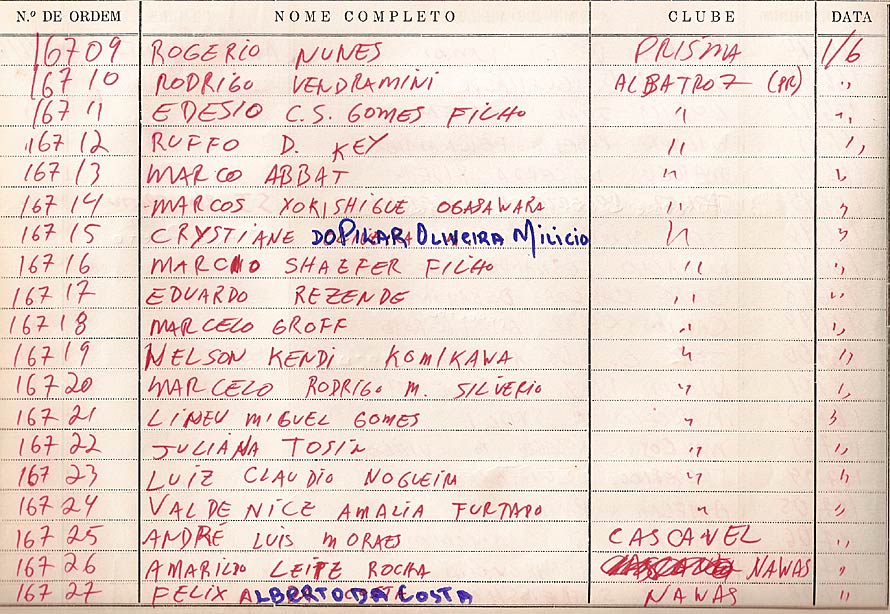 N.º DE ORDEM NOME COMPLETO CLUBE DATA
16709 ROGERIO NUNES PRISMA 1/6
16710 RODRIGO VENDRAMINI ALBATROZ (PR) "
16711 EDESIO C.S. GOMES FILHO " "
16712 RUFFO D. KEY " "
16713 MARCO ABBAT " "
16714 MARCOS YORISHIGUE OGASAWARA " "
16715 CRYSTIANE DO PILAR OLIVEIRA MILICIO " "
16716 MARCIO SHAEFER FILHO " "
16717 EDUARDO REZENDE " "
16718 MARCELO GROFF " "
16719 NELSON KENDI KOMIKAWA " "
16720 MARCELO RODRIGO M. SILVERIO " "
16721 LINEU MIGUEL GOMES " "
16722 JULIANA TOSIN " "
16723 LUIZ CLAUDIO NOGUEIRA " "
16724 VALDENICE AMALIA FURTADO " "
16725 ANDRÉ LUIS MORAES CASCAVEL "
16726 AMARILDO LEITE ROCHA NAWAS "
16727 FELIX ALBERTO DA COSTA NAWAS "